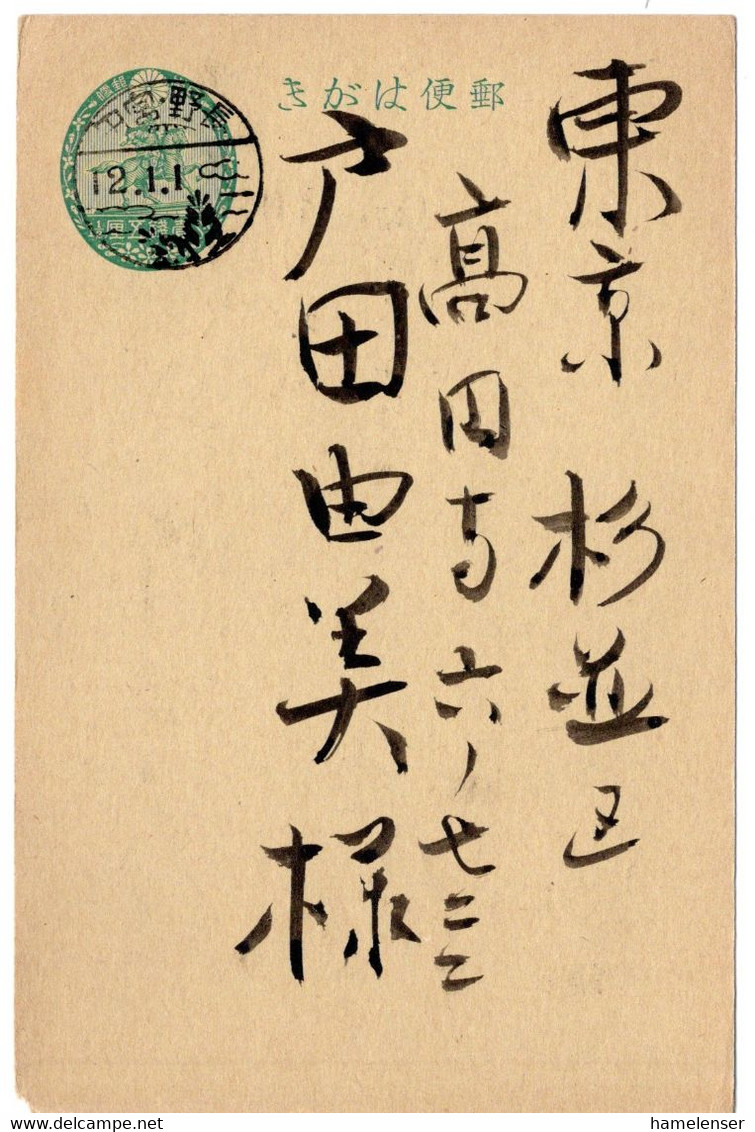 郵便はがき
東京 杉並区
高円寺六ノ七二二
戸田由美様
長野・富
12.1.1
hamelenser